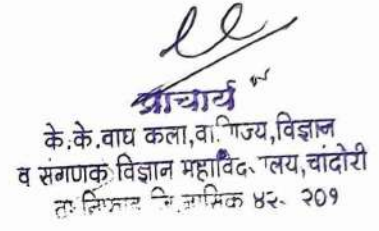 प्राचार्य
के.के.वाघ कला,वाणिज्य,विज्ञान
व संगणक विज्ञान महाविद्यालय,चांदोरी
ता. निफाड जि.नासिक ४२ २०१